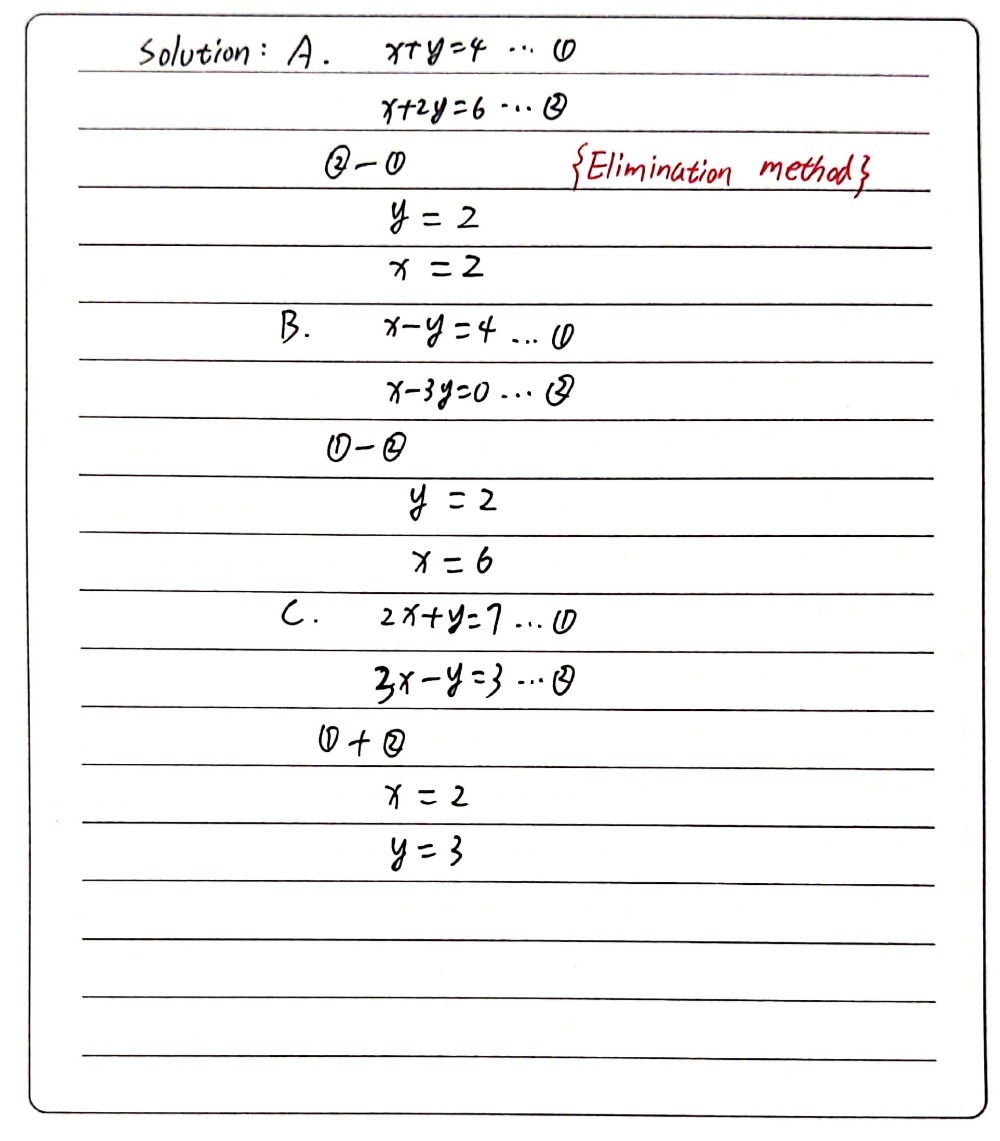 Solution: A. x+y=4 ... ①
x+2y=6 ... ②
②-① {Elimination method}
y = 2
x = 2
B. x-y=4 ... ①
x-3y=0 ... ②
①-②
y = 2
x = 6
C. 2x+y=7 ... ①
3x-y=3 ... ②
①+②
x = 2
y = 3